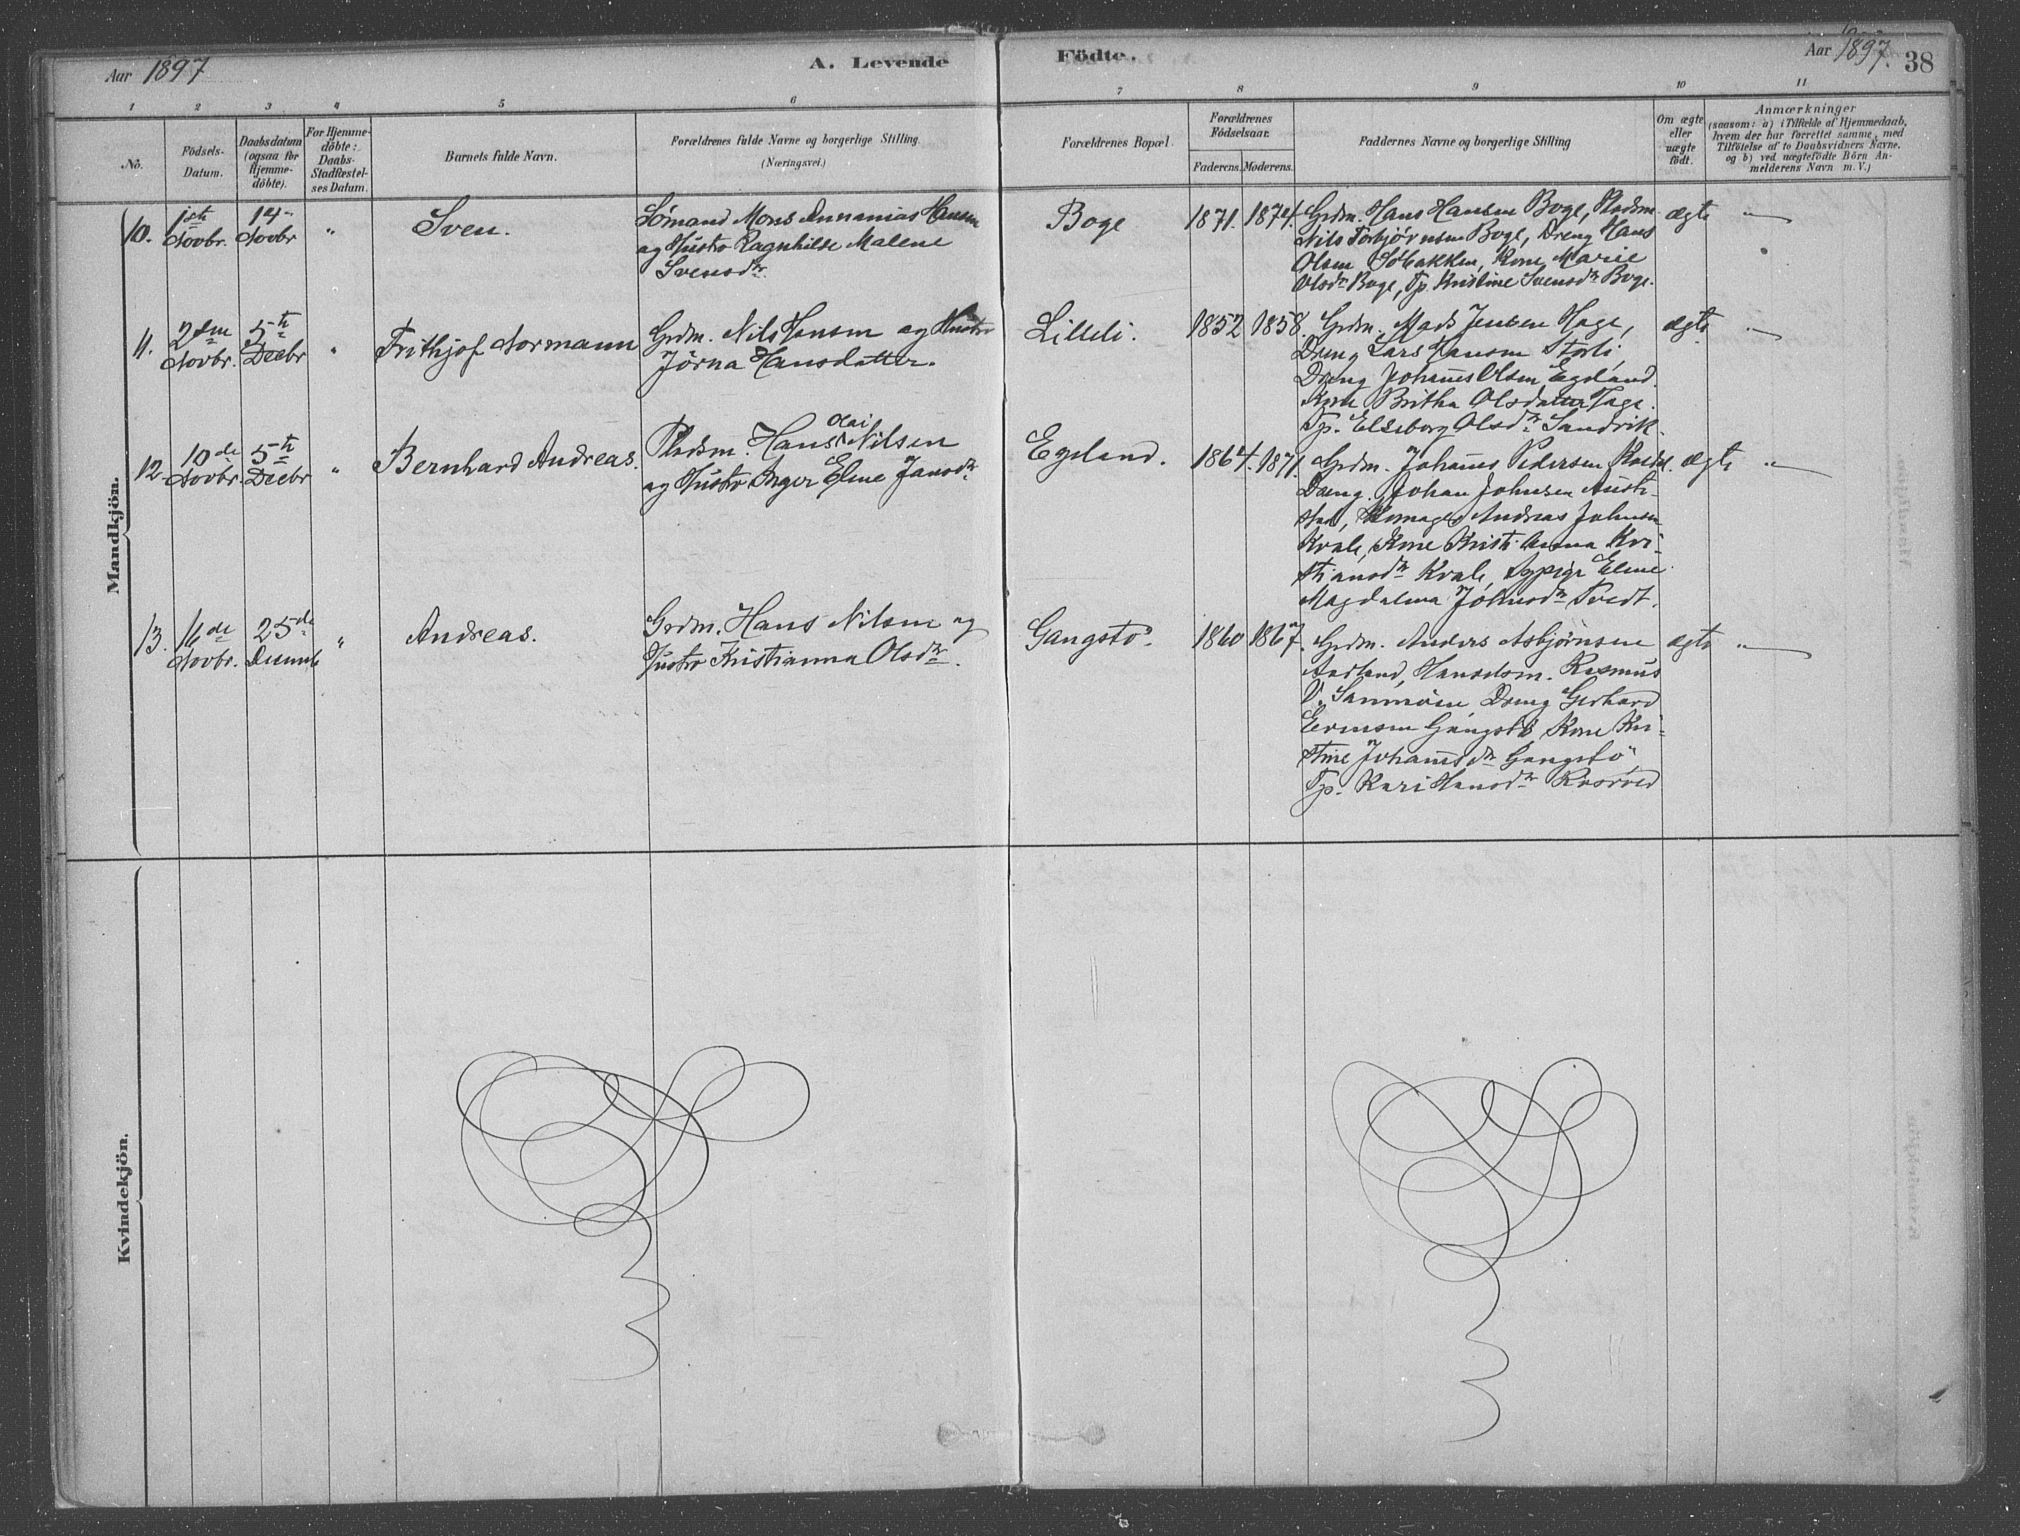 Aar 1897
A. Levende Födte.
Aar 1897. 38
1 2 3 4 5 6 7 8 9 10 11
No.
Födsels-Datum.
Daabsdatum (ogsaa for Hjemme-döbte).
For Hjemme-döbte: Daabs-Stadfæstel-ses Datum.
Barnets fulde Navn.
Forældrenes fulde Navne og borgerlige Stilling
(Næringsvei.)
Forældrenes Bopæl.
Forældrenes Födselsaar.
Faderens. Moderens.
Faddernes Navne og borgerlige Stilling
Om ægte eller uægte födt.
Anmærkninger
(saasom: a) i Tilfælde af Hjemmedaab,
hvem der har forrettet samme, med
Tilföielse af to Daabsvidners Navne.
og b) ved uægtefödte Börn An-
melderens Navn m. V.)
Mandkjön.
10.
1ste Novbr.
14- Novbr
"
Sven.
Sømand Mons Annanias Hansen
og Hustro Ragnhilde Malene
Svensdtr.
Boge
1871. 1874.
Grdm. Hans Hansen Boge, Pladsm.
Nils Torbjørnsen Boge, Dreng Hans
Olsen Søbakken, Kone Marie
Olsdtr Boge, Tp. Kristine Svensdtr Boge.
ægte
"
11.
2den Novbr.
5th Decbr
"
Frithjof Normann
Grdm. Nils Hansen og Hustro
Jörna Hansdatter.
Lilleli.
1852 1858.
Grdm. Mads Jensen Hage,
Dreng Lars Hansen Storli,
Dreng Johannes Olsen Egeland.
Kone Britha Olsdatter Hage.
Tp. Elseborg Olsdtr Sandvik.
ægte
"
12.
10de Novbr.
5th Decbr
"
Bernhard Andreas.
Pladsm. Hans Olai Nilsen
og Hustro Inger Eline Jansdtr
Egeland.
1864. 1871.
Grdm. Johannes Pedersen
Dreng. Johan Johnsen Austi-
stad, Andreas Johnsen
Kvale, Kone Kristi Anna Kri-
stiansdtr Kvale, Sypige Eline
Magdalena Johnsdtr Tvedt.
ægte
"
13.
16de Novbr.
25de Decemb
"
Andreas.
Grdm. Hans Nilsen og
Hustro Kristianna Olsdtr.
Gangstö.
1860 1867.
Grdm. Anders Asbjørnsen
Aadland, Handelsm. Rasmus
O. Sammøen, Dreng Gerhard
Evensen Gangstö Kone Kri-
stine Johannesdtr Gangstö,
Tp. Kari Hansdtr
ægte
"
Kvindekjön.